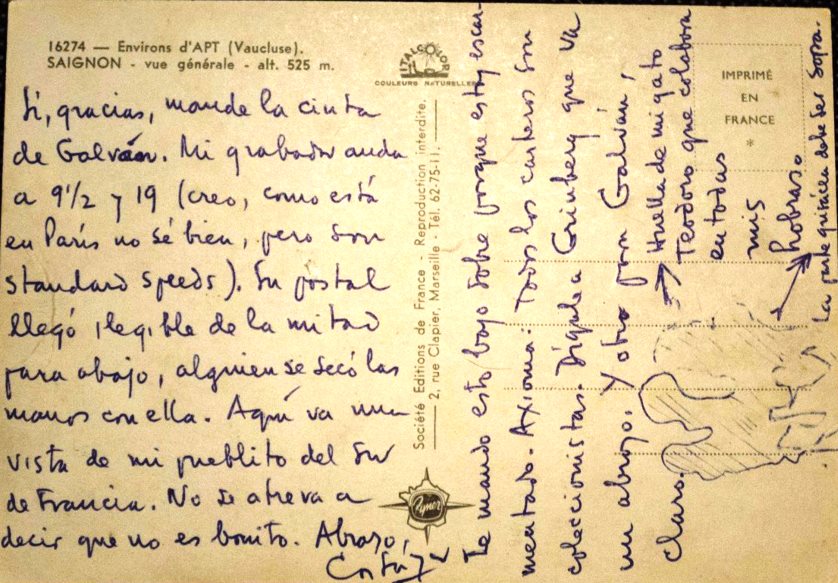 16274 — Environs d'APT (Vaucluse).
SAIGNON - vue générale - alt. 525 m.
ITALCOLOR
COULEURS NATURELLES
Si, gracias, mande la cinta
de Galván. Mi grabador anda
a 9½ y 19 (creo, como está
en París no sé bien, pero son
standard speeds). Su postal
llegó ilegible de la mitad
para abajo, alguien se secó las
manos con ella. Aquí va una
vista de mi pueblito del Sur
de Francia. No se atreva a
decir que no es bonito. Abrazo,
Cortázar
Société Editions de France - Reproduction interdite.
2, rue Clapier, Marseille - Tél. 62-75-11.
Te mando esto bajo sobre porque estoy escar-
mentado. Axioma: Todos los carteros son
coleccionistas. Dígale a Grinberg que va
un abrazo. Y otro para Galván,
claro.
IMPRIMÉ
EN
FRANCE
*
Huella de mi gato
Teodoro que colabora
en todas
mis
hobras.
La parte química debe ser sopa.